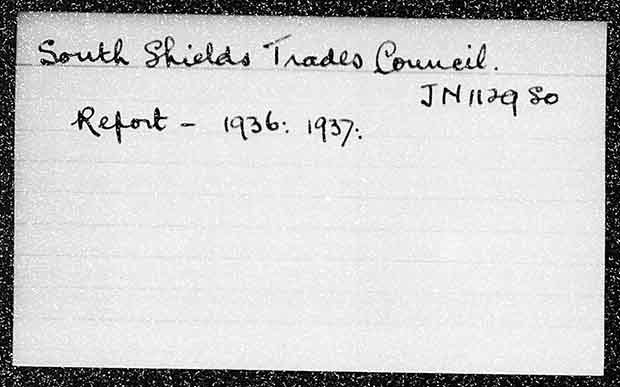 South Shields Trades Council.
JN 1129 So
Report - 1936: 1937: